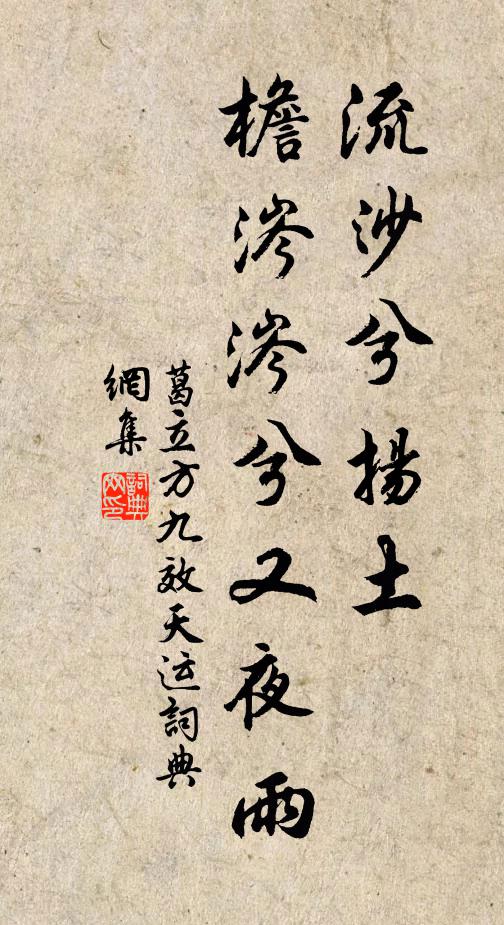 流沙兮揚土
檐涔涔兮又夜雨
葛立方九效天运詞典
網集
詞典
网印